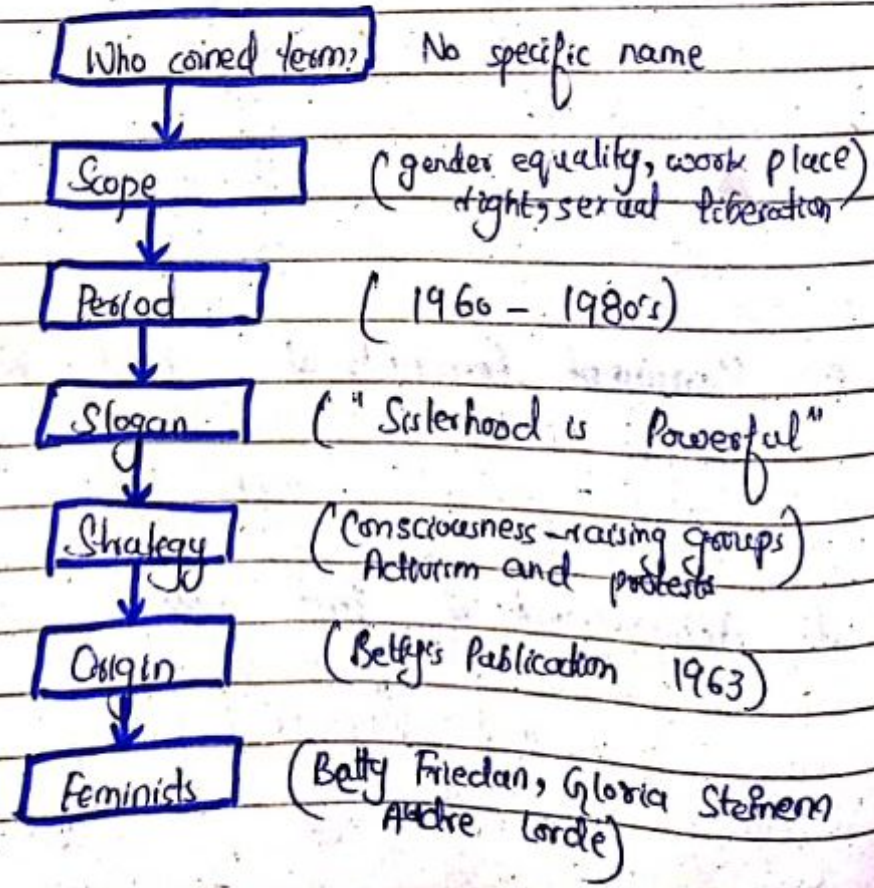 Who coined term? No specific name
Scope (gender equality, work place
right, sexual liberation)
Period (1960 - 1980's)
Slogan ("Sisterhood is Powerful"
Strategy (Consciousness-raising groups)
Activism and protests
Origin (Betty's Publication 1963)
Feminists (Betty Friedan, Gloria Steinem
Audre Lorde)